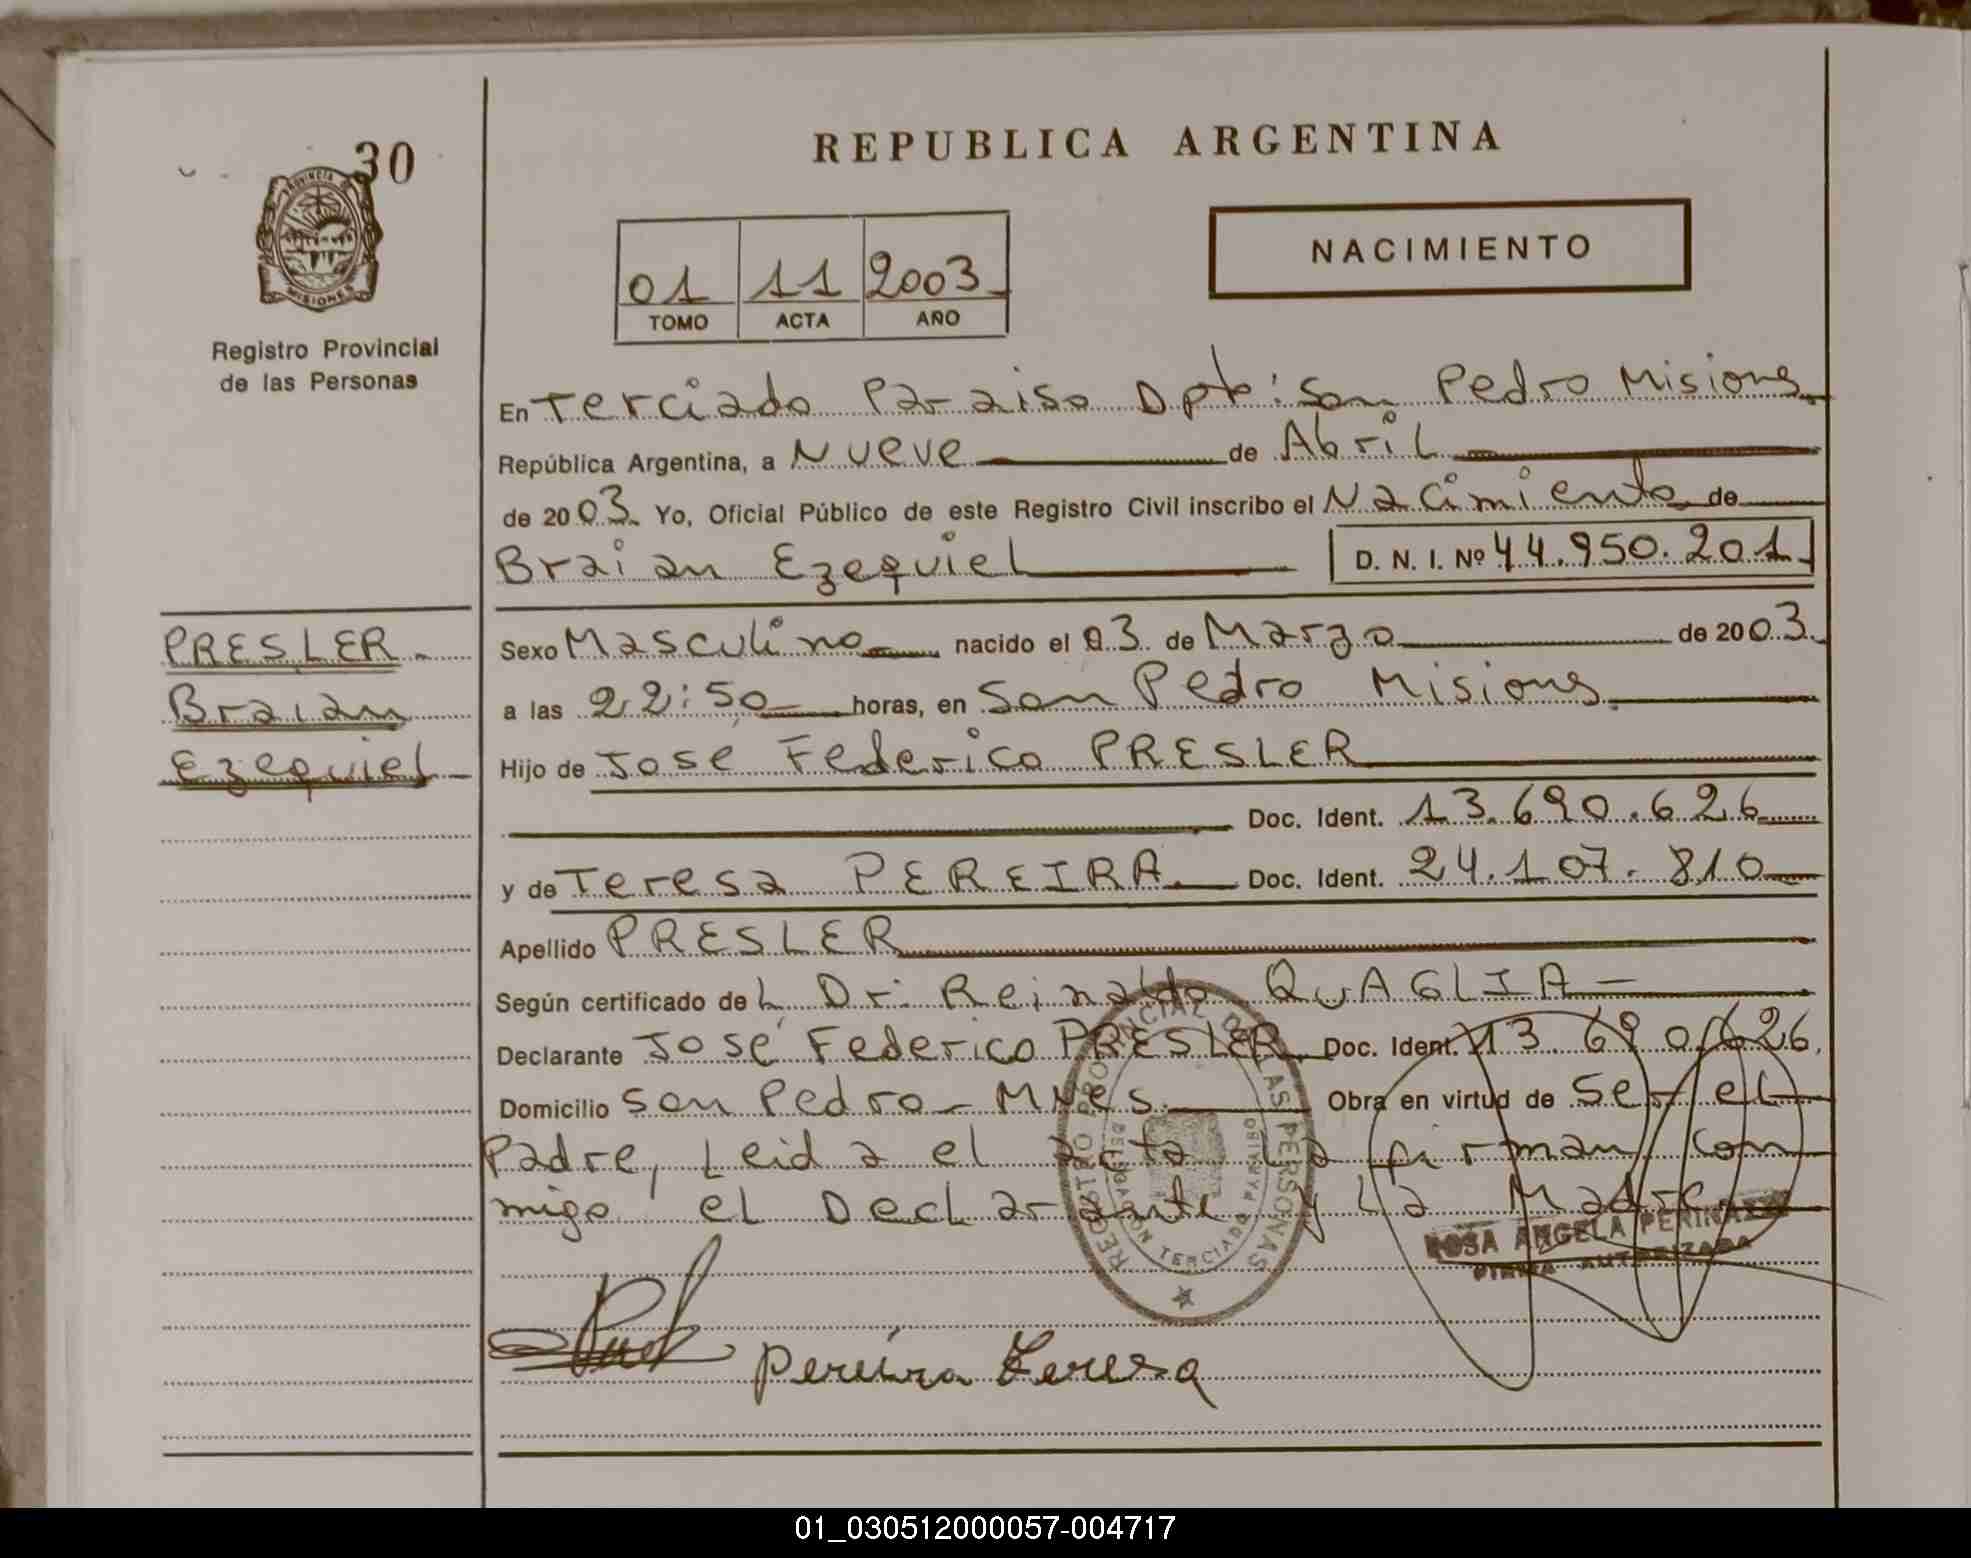 30
PROVINCIA DE
MISIONES
Registro Provincial
de las Personas
PRESLER
Braian
Ezequiel
REPUBLICA ARGENTINA
01 11 2003
TOMO ACTA AÑO
NACIMIENTO
En Terciado Paraiso Dpto: San Pedro Misiones
República Argentina, a Nueve de Abril
de 2003. Yo, Oficial Público de este Registro Civil inscribo el Nacimiento de
Braian Ezequiel D. N. I. Nº 44.950.201
Sexo Masculino nacido el 03 de Marzo de 2003.
a las 22:50 horas, en San Pedro Misiones.
Hijo de José Federico PRESLER
Doc. Ident. 13.690.626
y de Teresa PEREIRA. Doc. Ident. 24.107.810
Apellido PRESLER
Según certificado del Dr. Reinaldo QuAGLIA-
Declarante José Federico PRESLER. Doc. Ident. 13.690.626.
Domicilio San Pedro - Mnes. Obra en virtud de ser el
Padre, Leida el acta la firman con
migo el Declarante y la Madre
REGISTRO PROVINCIAL DE LAS PERSONAS
DELEGACION TERCIADO PARAISO
ROSA ANGELA
FIRMA AUTORIZADA
Pereira Teresa
01_030512000057-004717